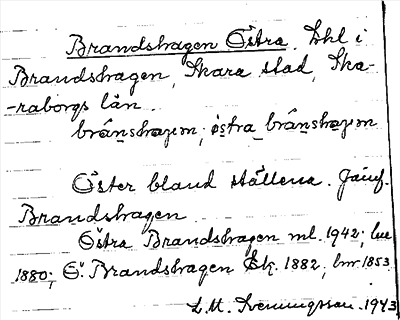 Brandshagen Östra. Lhl i
Brandshagen, Skara stad, Ska-
-raborgs län.
brânshagen; östra brânshagen
Öster bland ställena. Jämf.
Brandshagen
Östra Brandshagen ml. 1942;
1880; Ö. Brandshagen Ek. 1882, lmr 1853
L. M. Svenungsson. 1943